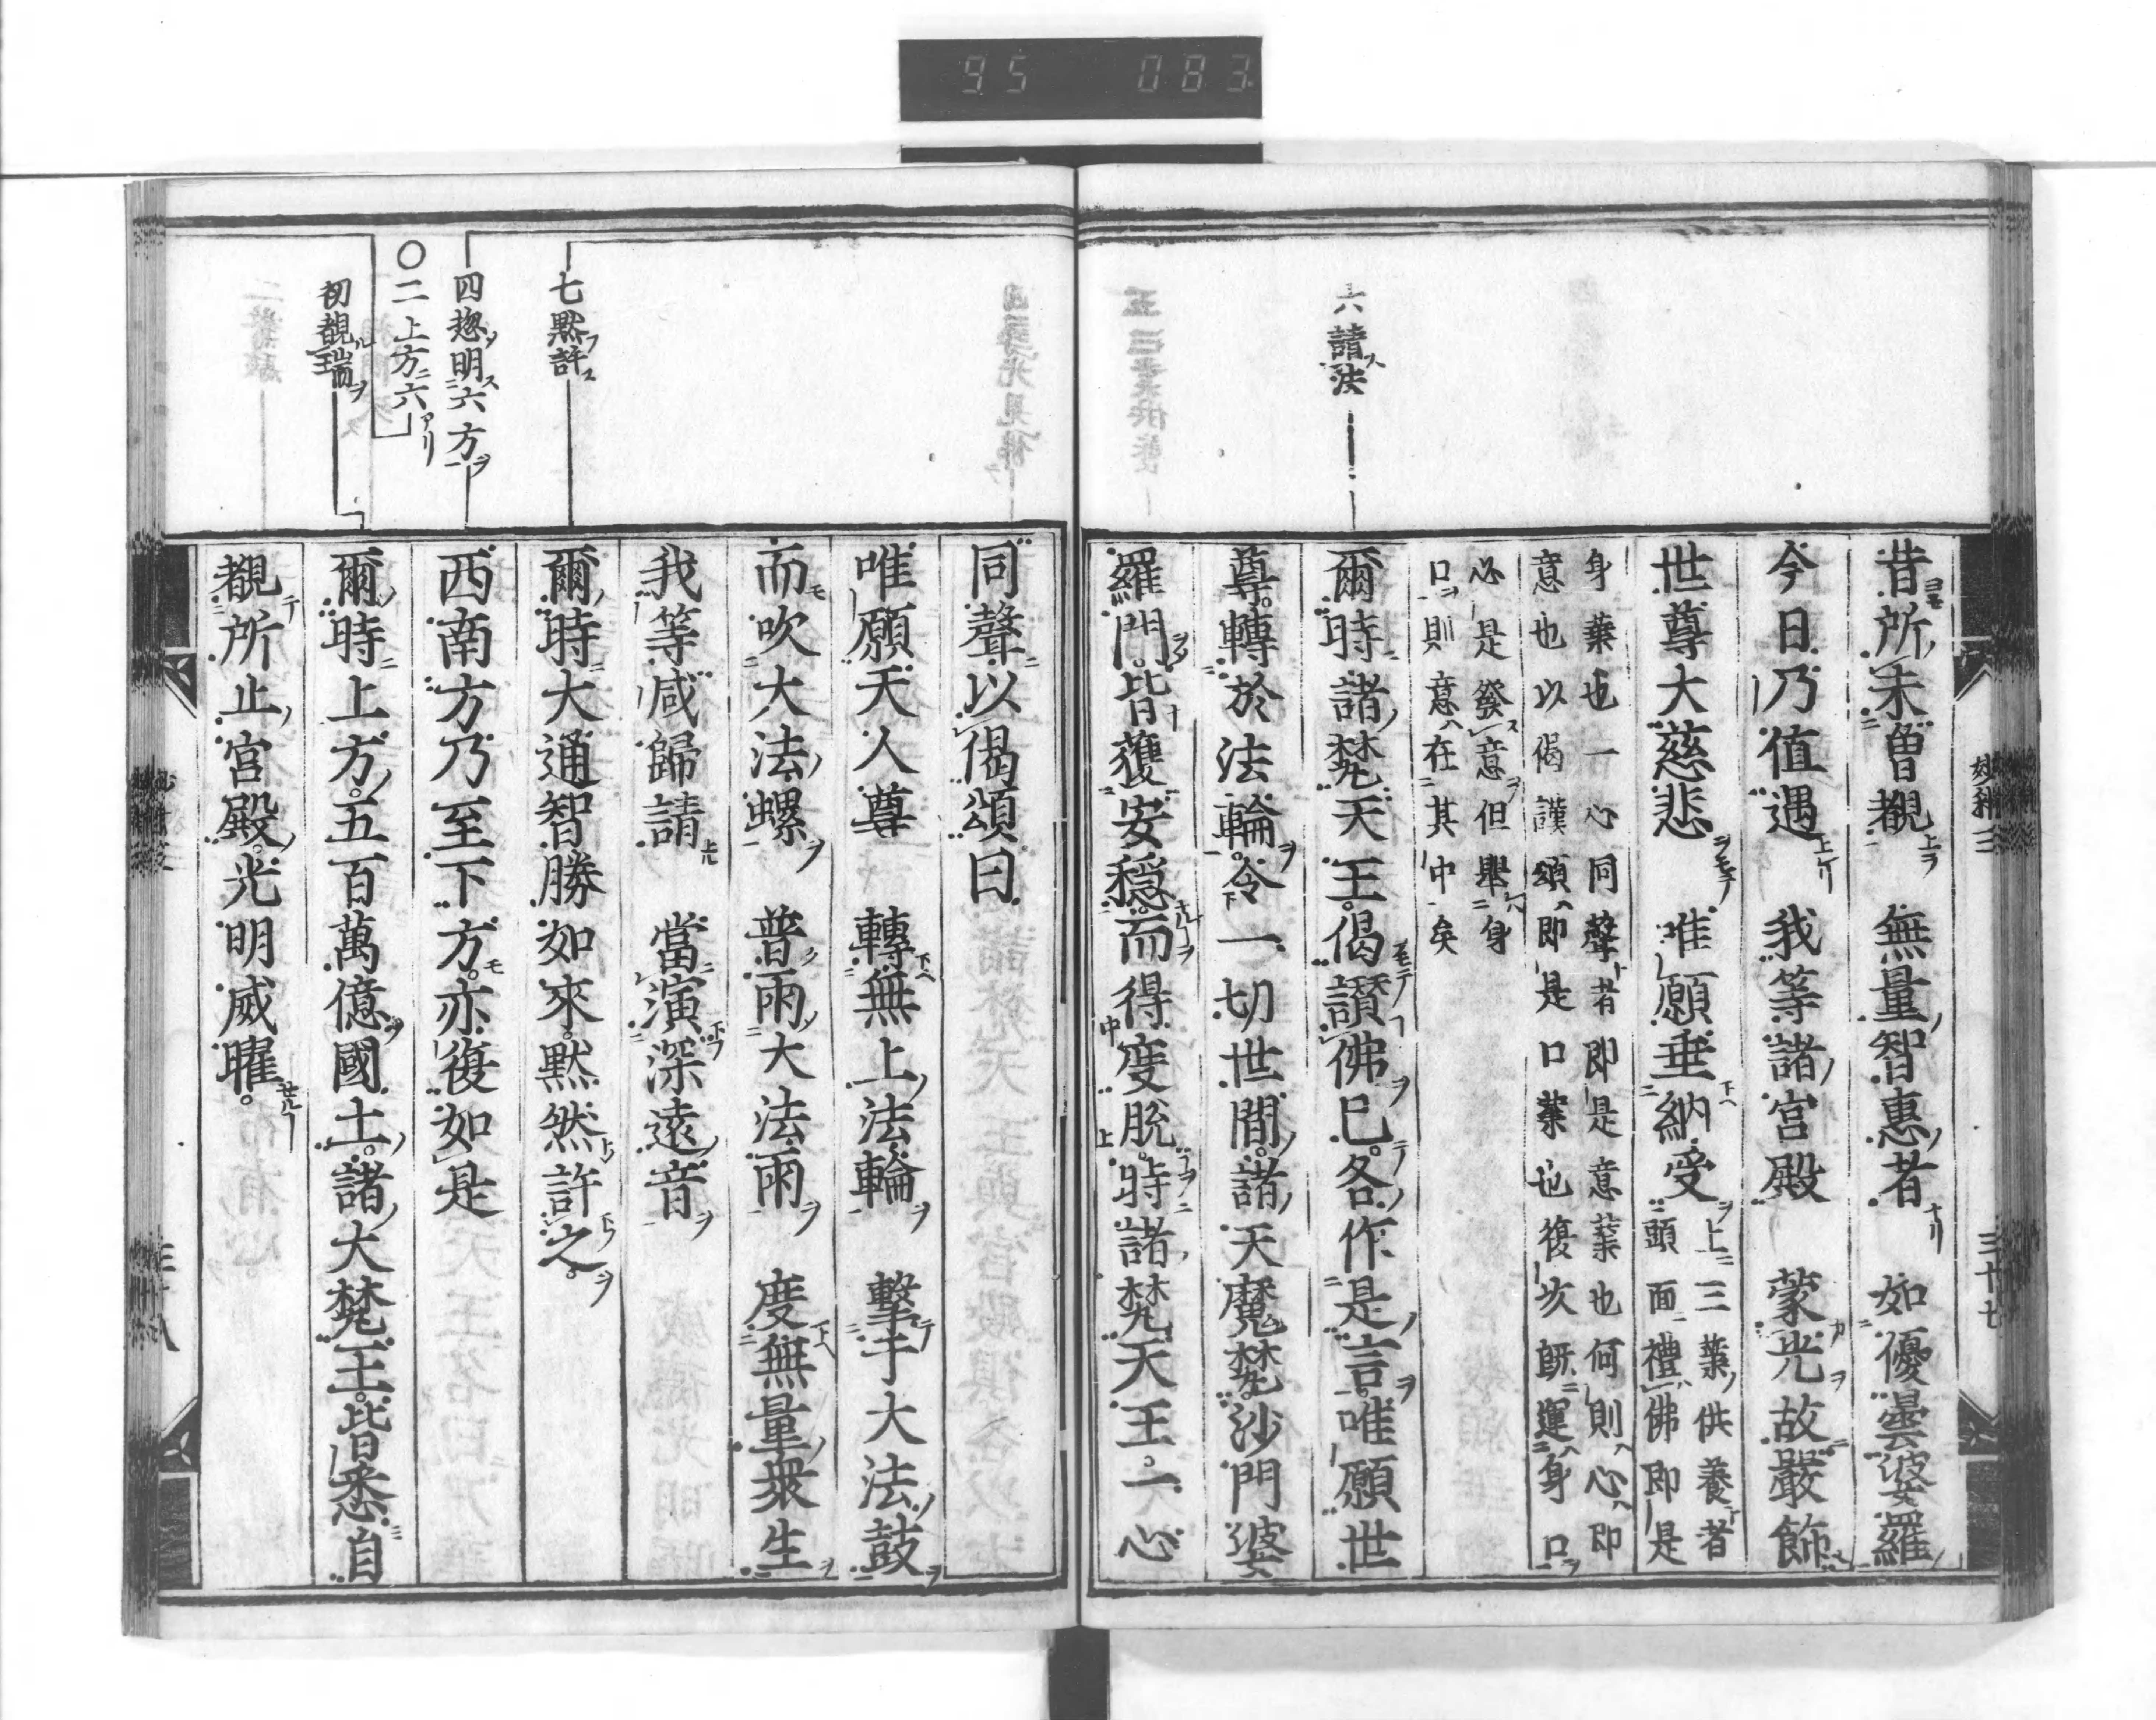 95 083
昔所未曾覩 無量智惠者 如優曇婆羅
今日乃值遇 我等諸宮殿 蒙光故嚴飾
世尊大慈悲 唯願垂納受
三業供養者
頭面禮佛即是
身業也一心同聲者即是意業也何則心即
意也以偈讃頌即是口業也復次既運身口
必是發意但舉身
口則意在其中矣
六請法
爾時諸梵天王偈讃佛已各作是言唯願世
尊轉於法輪令一切世間諸天魔梵沙門婆
羅門皆獲安穩而得度脱時諸梵天王一心
三十七
同聲以偈頌曰
唯願天人尊 轉無上法輪 擊于大法鼓
而吹大法螺 普雨大法雨 度無量衆生
我等咸歸請 當演深遠音
七默許
爾時大通智勝如來默然許之
四惣明六方
西南方乃至下方亦復如是
〇二上方六
初覩瑞
爾時上方五百萬億國土諸大梵王皆悉自
覩所止宮殿光明威曜